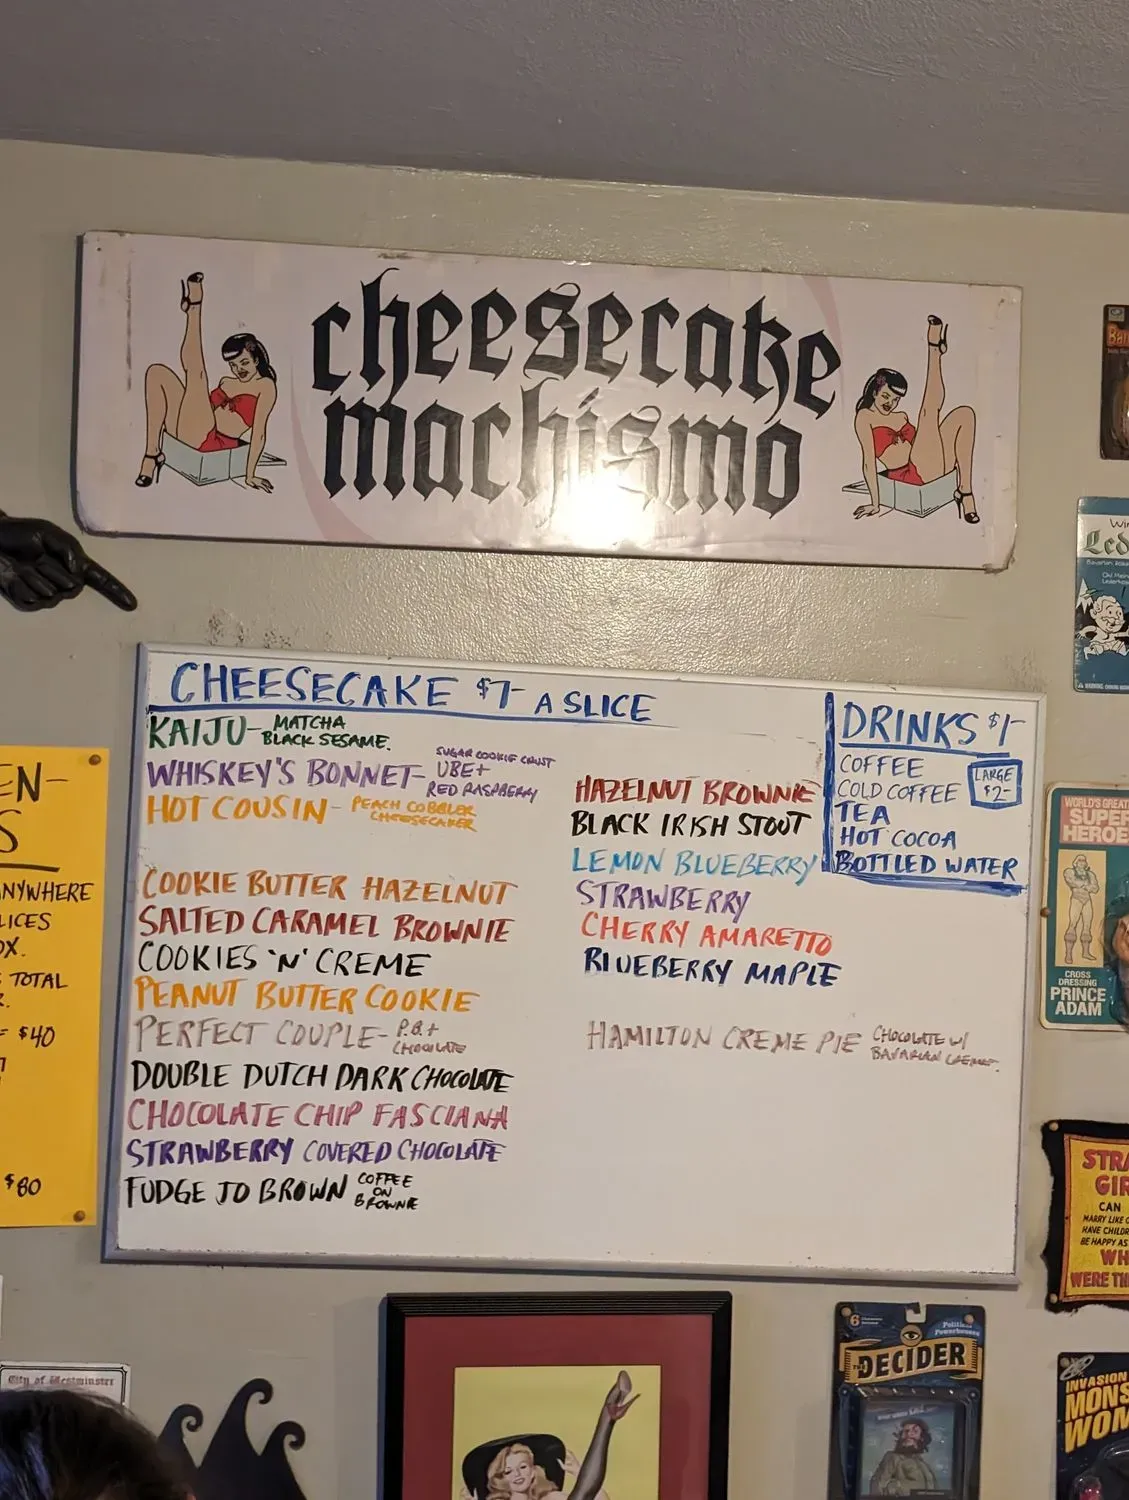 cheesecake
machismo
CHEESECAKE $7- A SLICE
KAIJU- MATCHA
BLACK SESAME.
WHISKEY'S BONNET- SUGAR COOKIE CRUST
UBE +
RED RASPBERRY
HOT COUSIN- PEACH COBBLER
CHEESECAKER
COOKIE BUTTER HAZELNUT
SALTED CARAMEL BROWNIE
COOKIES 'N' CREME
PEANUT BUTTER COOKIE
PERFECT COUPLE- P.B. +
CHOCOLATE
DOUBLE DUTCH DARK CHOCOLATE
CHOCOLATE CHIP FASCIANA
STRAWBERRY COVERED CHOCOLATE
FUDGE JO BROWN COFFEE
ON
BROWNIE
HAZELNUT BROWNIE
BLACK IRISH STOUT
LEMON BLUEBERRY
STRAWBERRY
CHERRY AMARETTO
BLUEBERRY MAPLE
HAMILTON CREME PIE CHOCOLATE W/
BAVARIAN CREME.
DRINKS $1-
COFFEE
COLD COFFEE
TEA
HOT COCOA
BOTTLED WATER
LARGE
$2-
EN-
S
NYWHERE
LICES
OX.
TOTAL
R.
= $40
$80
WORLD'S GREATEST
SUPER
HEROE
CROSS
DRESSING
PRINCE
ADAM
STRA
GIR
CAN
MARRY LIKE
HAVE CHILDR
BE HAPPY AS
WH
WERE TH
City of Westminster
6
Political
Powerhouses
THE DECIDER
INVASION
MONS
WOM